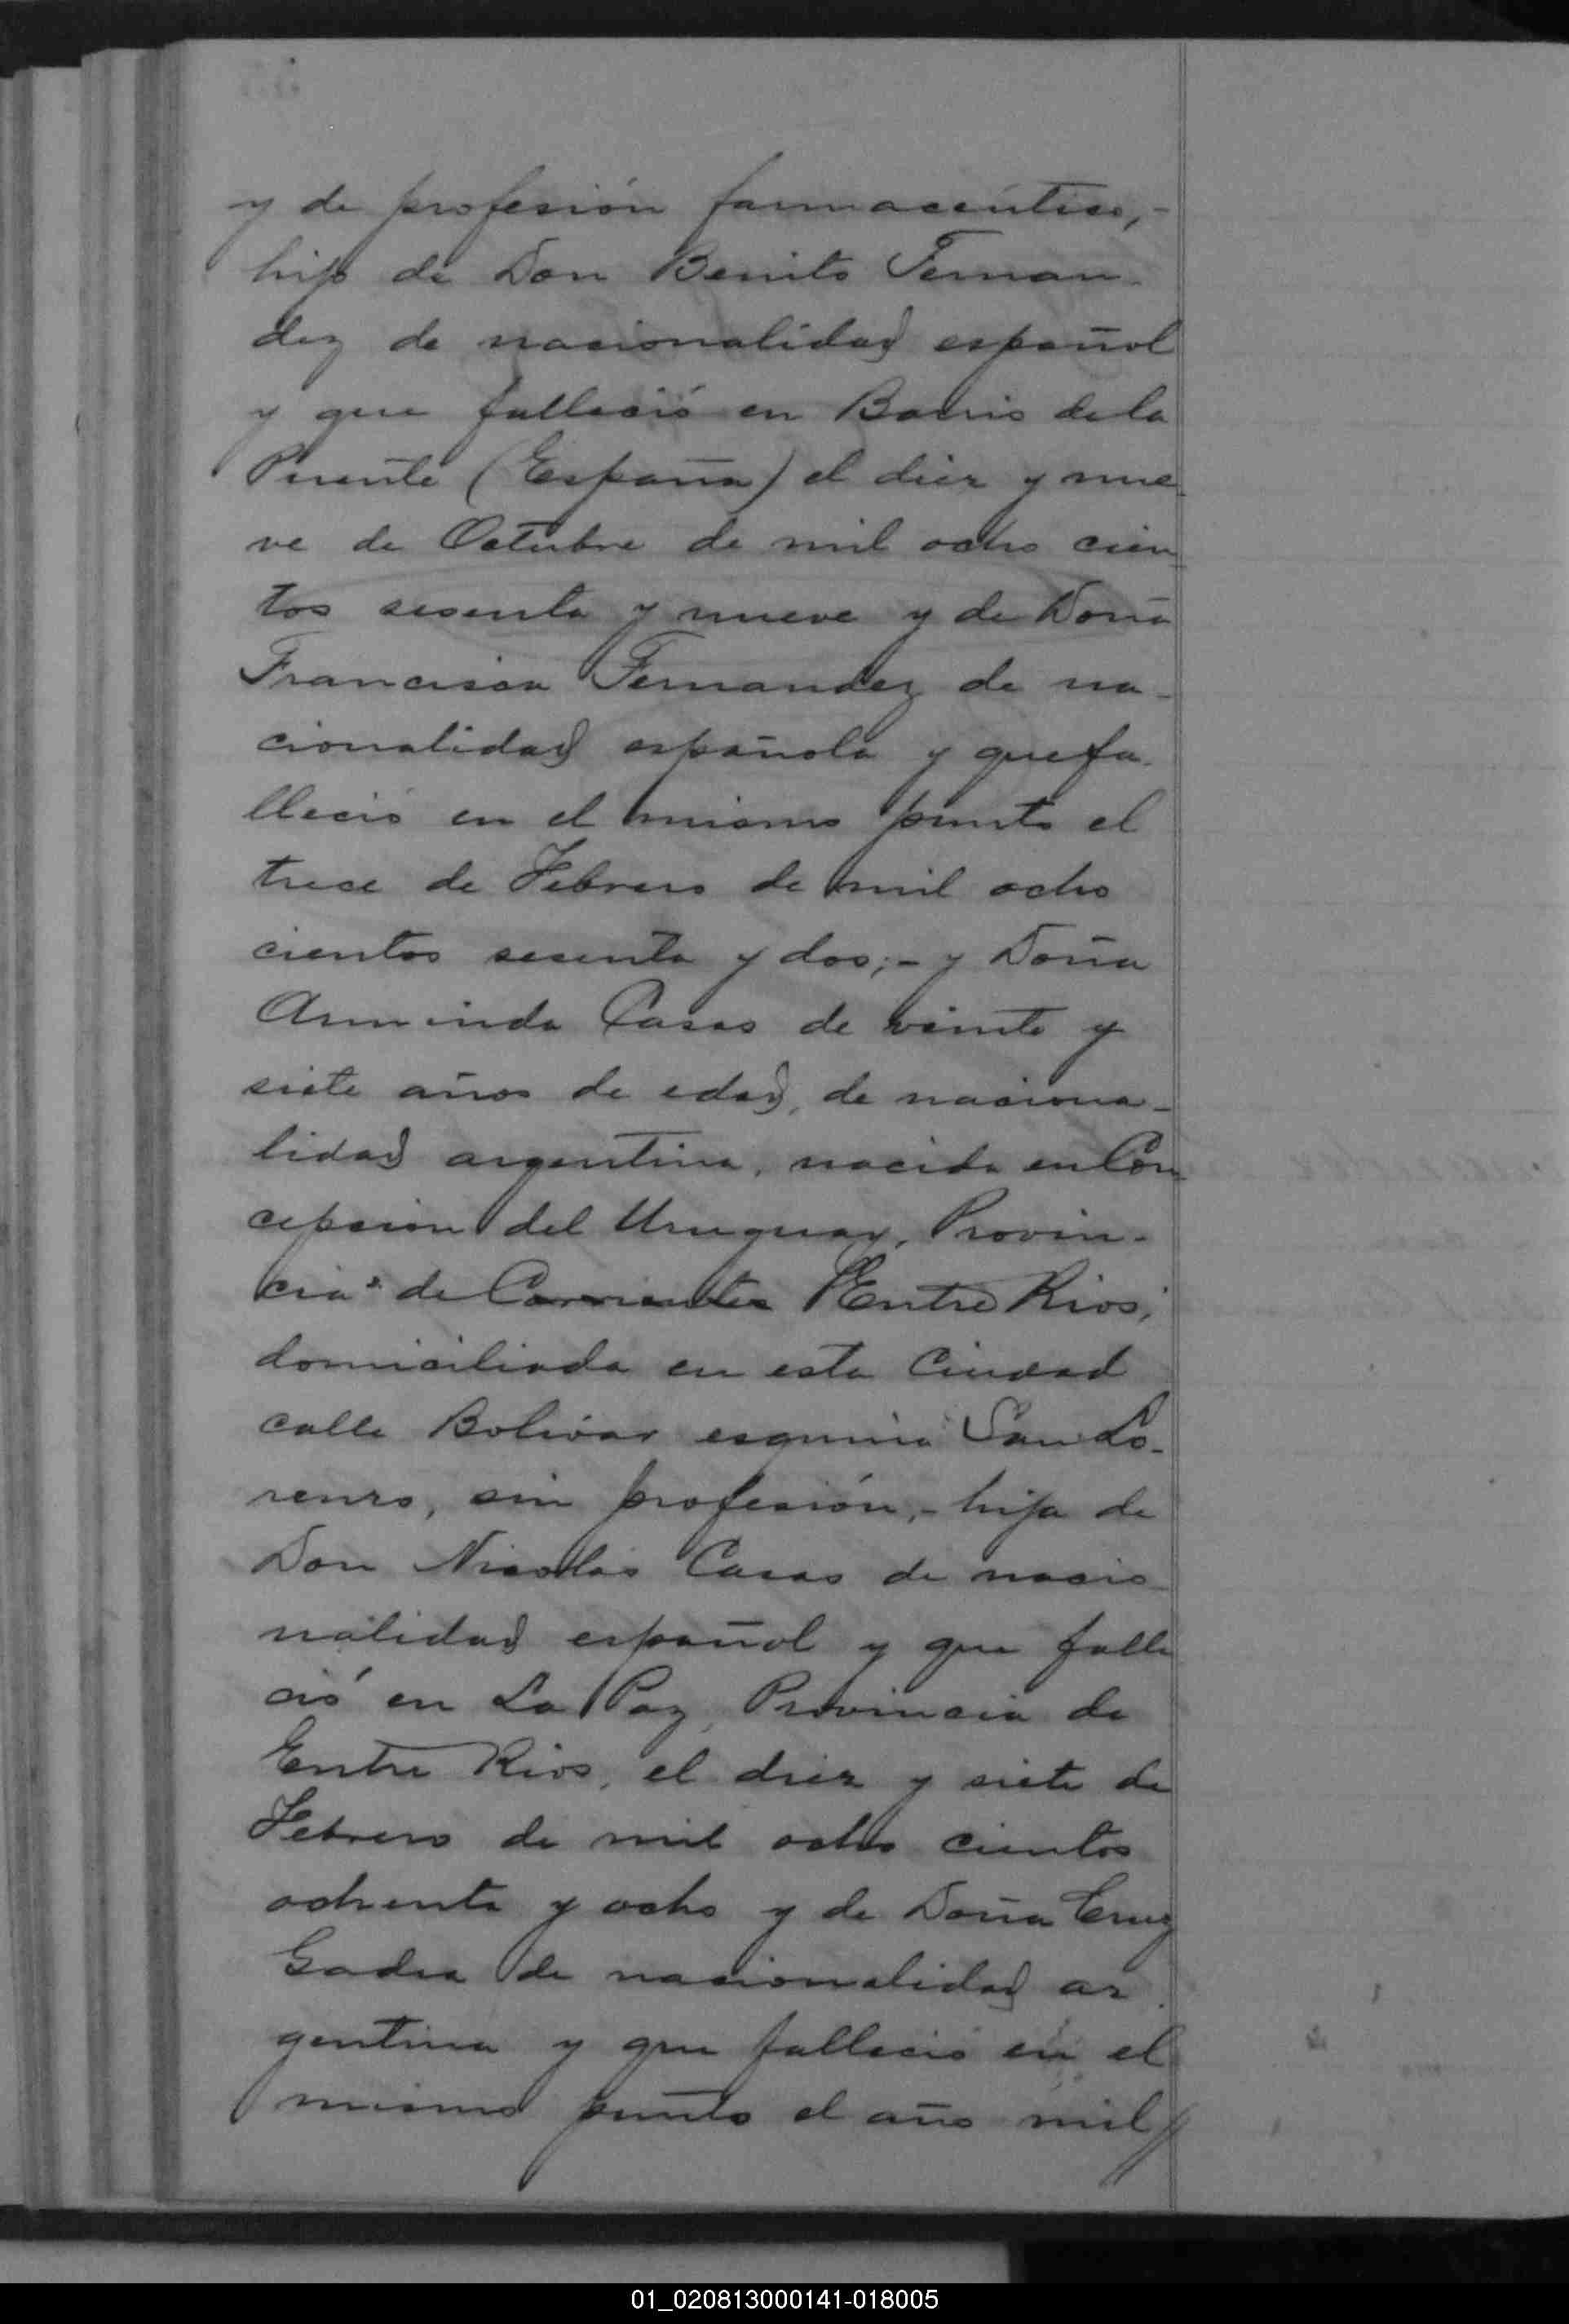 y de profesión farmacéutico,-
hijo de Don Benito Fernan-
dez de nacionalidad español
y que falleció en Barrio de la
Puente (España) el diez y nue-
ve de Octubre de mil ocho cien-
tos sesenta y nueve y de Doña
Francisca Fernandez de na-
cionalidad española y que fa-
lleció en el mismo punto el
trece de Febrero de mil ocho
cientos sesenta y dos;- y Doña
Arminda Casas de veinte y
siete años de edad, de naciona-
lidad argentina, nacida en Con-
cepcion del Uruguay, Provin-
cia de Corrientes Entre Rios,
domiciliada en esta Ciudad
calle Bolivar esquina San Lo-
renzo, sin profesión,- hija de
Don Nicolás Casas de nacio-
nalidad español y que falle
ció en La Paz, Provincia de
Entre Rios, el diez y siete de
Febrero de mil ocho cientos
ochenta y ocho y de Doña Cruz
Godea de nacionalidad ar-
gentina y que falleció en el
mismo punto el año mil//
01_020813000141-018005